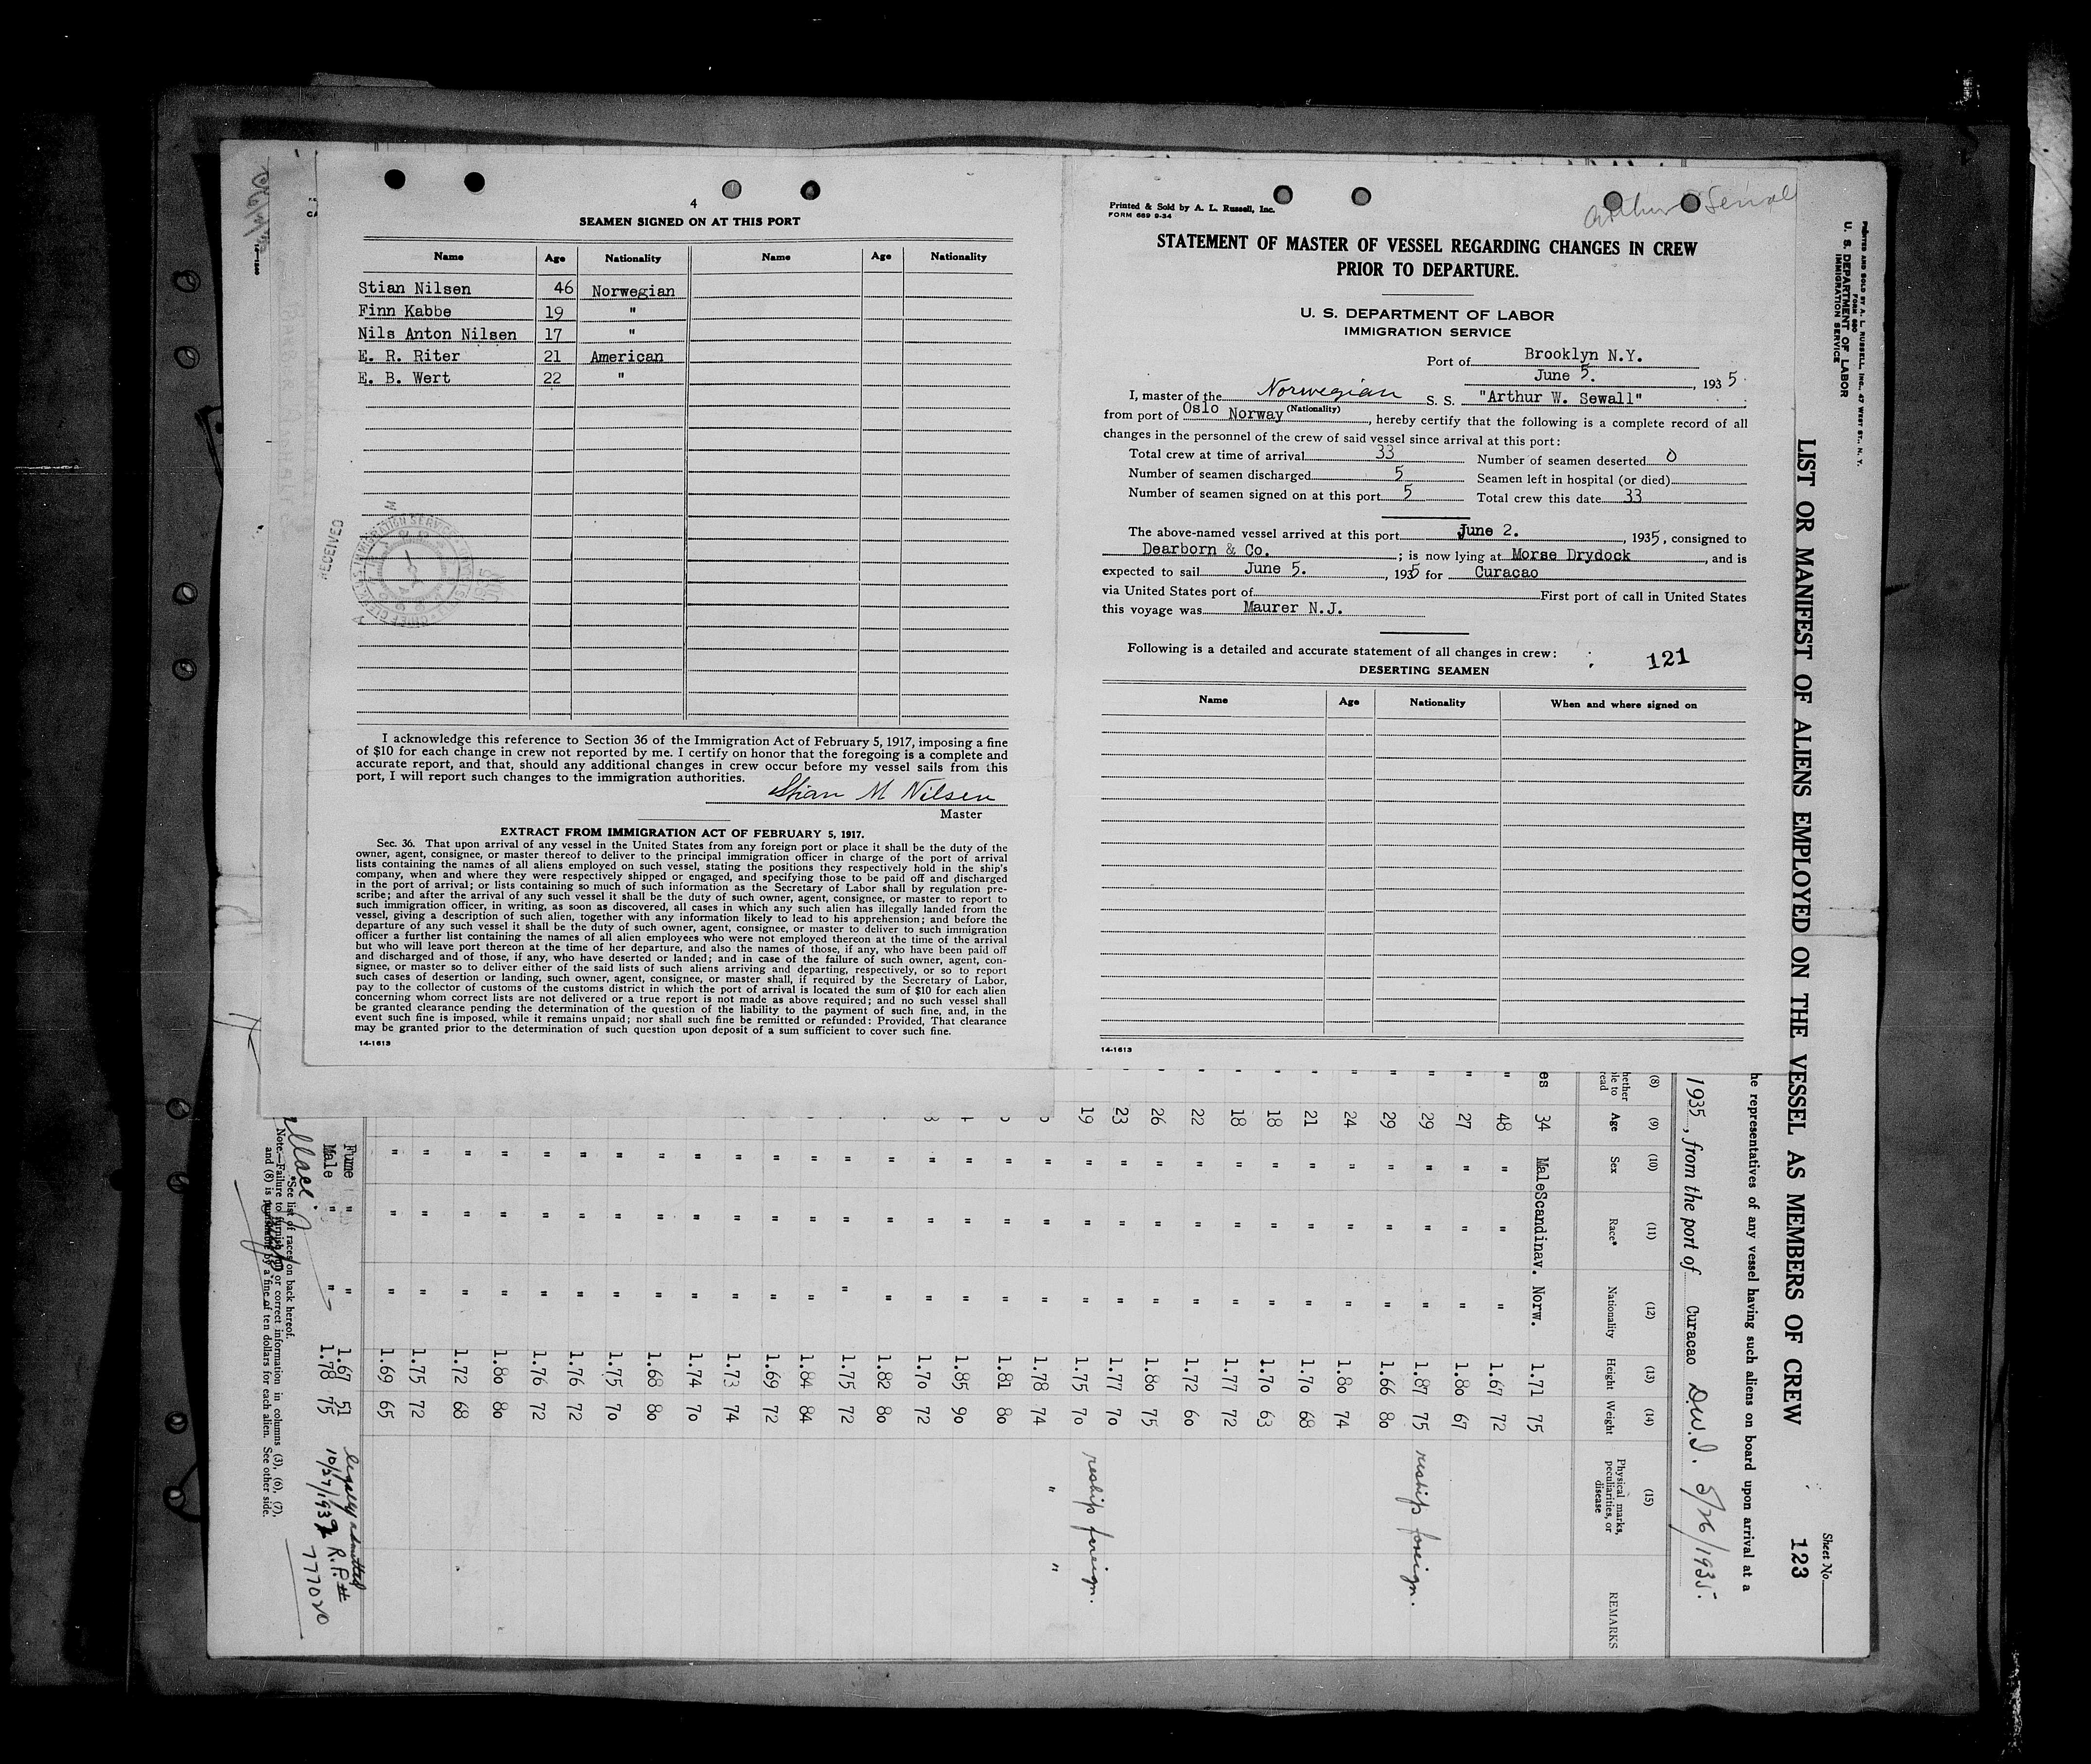 4
SEAMEN SIGNED ON AT THIS PORT
Name Age Nationality Name Age Nationality
Stian Nilsen 46 Norwegian
Finn Kabbe 19 "
Nils Anton Nilsen 17 "
E. R. Riter 21 American
E. B. Wert 22 "
RECEIVED
I acknowledge this reference to Section 36 of the Immigration Act of February 5, 1917, imposing a fine
of $10 for each change in crew not reported by me. I certify on honor that the foregoing is a complete and
accurate report, and that, should any additional changes in crew occur before my vessel sails from this
port, I will report such changes to the immigration authorities.
Stian M Nilsen
Master
EXTRACT FROM IMMIGRATION ACT OF FEBRUARY 5, 1917.
Sec. 36. That upon arrival of any vessel in the United States from any foreign port or place it shall be the duty of the
owner, agent, consignee, or master thereof to deliver to the principal immigration officer in charge of the port of arrival
lists containing the names of all aliens employed on such vessel, stating the positions they respectively hold in the ship's
company, when and where they were respectively shipped or engaged, and specifying those to be paid off and discharged
in the port of arrival; or lists containing so much of such information as the Secretary of Labor shall by regulation pre-
scribe; and after the arrival of any such vessel it shall be the duty of such owner, agent, consignee, or master to report to
such immigration officer, in writing, as soon as discovered, all cases in which any such alien has illegally landed from the
vessel, giving a description of such alien, together with any information likely to lead to his apprehension; and before the
departure of any such vessel it shall be the duty of such owner, agent, consignee, or master to deliver to such immigration
officer a further list containing the names of all alien employees who were not employed thereon at the time of the arrival
but who will leave port thereon at the time of her departure, and also the names of those, if any, who have been paid off
and discharged and of those, if any, who have deserted or landed; and in case of the failure of such owner, agent, con-
signee, or master so to deliver either of the said lists of such aliens arriving and departing, respectively, or so to report
such cases of desertion or landing, such owner, agent, consignee, or master shall, if required by the Secretary of Labor,
pay to the collector of customs of the customs district in which the port of arrival is located the sum of $10 for each alien
concerning whom correct lists are not delivered or a true report is not made as above required; and no such vessel shall
be granted clearance pending the determination of the question of the liability to the payment of such fine, and, in the
event such fine is imposed, while it remains unpaid; nor shall such fine be remitted or refunded: Provided, That clearance
may be granted prior to the determination of such question upon deposit of a sum sufficient to cover such fine.
14-1613
Printed & Sold by A. L. Russell, Inc.
FORM 689 9-34
Arthur Sewall
STATEMENT OF MASTER OF VESSEL REGARDING CHANGES IN CREW
PRIOR TO DEPARTURE.
U. S. DEPARTMENT OF LABOR
IMMIGRATION SERVICE
Port of Brooklyn N.Y.
June 5. , 1935
I, master of the Norwegian S. S. "Arthur W. Sewall"
(Nationality)
from port of Oslo Norway, hereby certify that the following is a complete record of all
changes in the personnel of the crew of said vessel since arrival at this port:
Total crew at time of arrival 33 Number of seamen deserted 0
Number of seamen discharged 5 Seamen left in hospital (or died)
Number of seamen signed on at this port 5 Total crew this date 33
The above-named vessel arrived at this port June 2. , 1935, consigned to
Dearborn & Co. ; is now lying at Morse Drydock , and is
expected to sail June 5. , 1935 for Curacao
via United States port of First port of call in United States
this voyage was Maurer N.J.
Following is a detailed and accurate statement of all changes in crew: 121
DESERTING SEAMEN
Name Age Nationality When and where signed on
14-1613
PRINTED AND SOLD BY A. L. RUSSELL, INC., 47 WEST ST., N. Y.
U. S. DEPARTMENT OF LABOR
IMMIGRATION SERVICE
Sheet No.
LIST OR MANIFEST OF ALIENS EMPLOYED ON THE VESSEL AS MEMBERS OF CREW 123
he representatives of any vessel having such aliens on board upon arrival at a
1935, from the port of Curacao D.W.I. 5/26/1935.
(8) (9) (10) (11) (12) (13) (14) (15)
Age Sex Race* Nationality Height Weight Physical marks, peculiarities, or disease REMARKS
es 34 Male Scandinav. Norw. 1.71 75
" 48 " " " 1.67 72
" 27 " " " 1.80 67
" 29 " " " 1.87 75 reship foreign.
" 29 " " " 1.66 80
" 24 " " " 1.80 74
" 21 " " " 1.70 68
" 18 " " " 1.70 63
" 18 " " " 1.77 72
" 22 " " " 1.72 60
" 26 " " " 1.80 75
" 23 " " " 1.77 70
" 19 " " " 1.75 70 reship foreign.
" " " 1.78 74 " "
" " " 1.81 80
" " " 1.85 90
" " " 1.70 72
" " " 1.82 80
" " " 1.75 72
" " " 1.84 84
" " " 1.69 72
" " " 1.73 74
" " " 1.74 70
" " " 1.68 80
" " " 1.75 70
" " " 1.76 72
" " " 1.76 72
" " " 1.80 80
" " " 1.72 68
" " " 1.75 72
" " " 1.69 65
Fume " " 1.67 51 legally admitted
Male " " 1.78 75 10/27/1932 R.P.# 777020
*See list of races on back hereof.
Note.—Failure to furnish or correct information in columns (3), (6), (7),
and (8) is punishable by a fine of ten dollars for each alien. See other side.